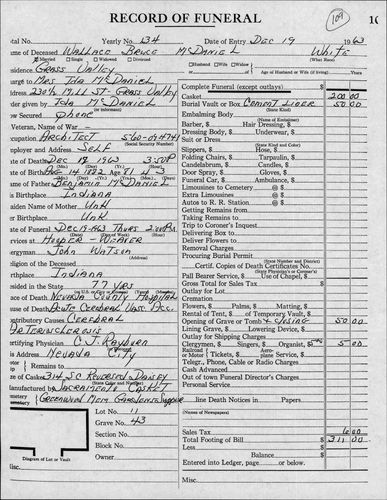 RECORD OF FUNERAL
109
tal No.
Yearly No. 134
Date of Entry DEC 19 1963
me of Deceased WALLACE BRUCE McDANIEL
WHITE
(What Race)
Married Single Widowed Divorced
Husband Wife Widow
of
Age of Husband or Wife (if living) Years
sidence GRASS VALLEY
arge to MRS IDA McDANIEL
Address
MILL ST- GRASS VALLEY
der given by IDA McDANIEL
(or informant)
w Secured PHONE
Veteran, Name of War
cupation ARCHITECT
(Social Security Number)
ployer and Address SELF
te of Death DEC 17 1963 3:50 PM
te of Birth AUG 14 1882 Age 81 4 3
me of Father BENJAMIN McDANIEL
is Birthplace INDIANA
iden Name of Mother UNK
er Birthplace UNK
te of Funeral DEC 19-1963 THURS 2:00 PM
rvices at HOOPER-WEAVER
(Address)
ergyman JOHN WATSON
ligion of the Deceased
rthplace INDIANA
sided in the State 77 YRS
ace of Death NEVADA COUNTY HOSPITAL
use of Death ACUTE CEREBRAL VASC. ACC.
ntributory Causes CEREBRAL
ARTERIOSCLEROSIS
rtifying Physician C. J. RAYBURN
is Address NEVADA CITY
Remains to
ze of Casket
anufactured by SACRAMENTO CASKET
metery GREENWOOD MEM GARDENS
Lot No. 11
Grave No. 43
Section No.
Block No.
Owner
Diagram of Lot or Vault
Complete Funeral (except outlays) $
Casket 200 00
Burial Vault or Box CEMENT LINER 50 00
(State Kind)
Embalming Body
(Name of Embalmer)
Barber, $ Hair Dressing, $
Dressing Body, $ Underwear, $
Suit or Dress
(State Kind and Color)
Slippers, $ Hose, $
Folding Chairs, $ Tarpaulin, $
Candelabrum, $ Candles, $
Door Spray, $ Gloves, $
Funeral Car, $ Ambulance, $
Limousines to Cemetery @ $
Extra Limousines @ $
Autos to R. R. Station @ $
Getting Remains from
Taking Remains to
Trip to Coroner's Inquest
Delivering Box to
Deliver Flowers to
Removal Charges
(State Number and District)
Procuring Burial Permit
Certif. Copies of Death Certificates No.
(State Physician's or Coroner's)
Pall Bearer Service, $ Use of Chapel, $
Gross Total for Sales Tax $
Outlay for Lot
Cremation
Flowers, $ Palms, $ Matting, $
Rental of Tent, $ of Temporary Vault, $
Opening of Grave or Tomb & CLOSING 50 00
Lining Grave, $ Lowering Device, $
Outlay for Shipping Charges
Clergymen, $ Singers, $ Organist, $ 5 00
Railroad or Motor Tickets, $ Aeroplane Service, $
Telgr., Phone, Cable or Radio Charges
Cash Advanced
Out of town Funeral Director's Charges
Personal Service
line Death Notices in Papers
(Names of Newspapers)
Sales Tax 6 00
Total Footing of Bill $ 311 00
Less
Balance
Entered into Ledger, page or below.
Misc.